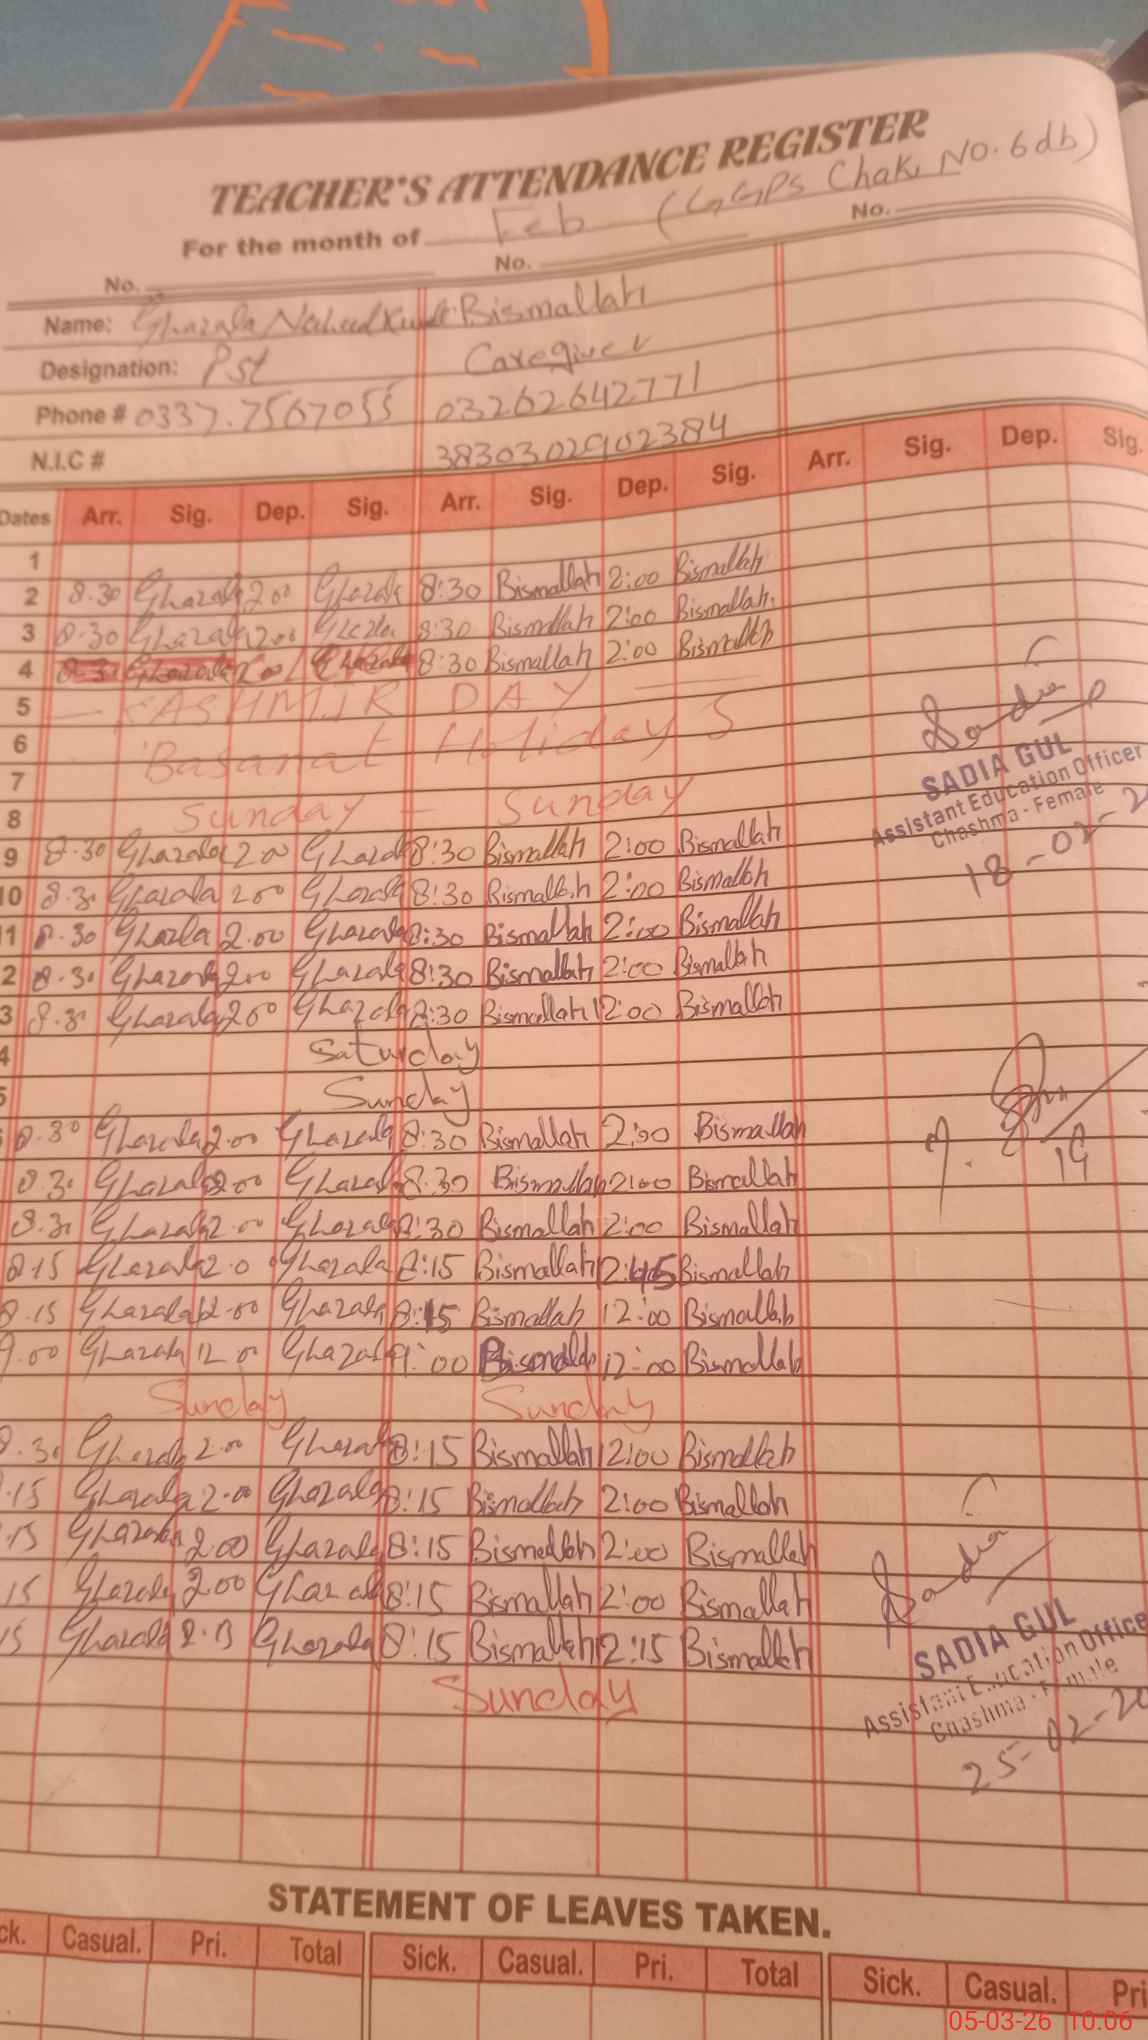 TEACHER'S ATTENDANCE REGISTER
For the month of Feb (GGPS Chak No. 6 db)
No. No. No.
Name: Ghazala Naheed Bismallah
Designation: Pst Caregiver
Phone # 0337.7567055 03262642771
N.I.C # 3830302902384
Dates Arr. Sig. Dep. Sig. Arr. Sig. Dep. Sig. Arr. Sig. Dep. Sig.
1
2 8.30 Ghazala 2.00 Ghazala 8:30 Bismallah 2:00 Bismallah
3 8.30 Ghazala 2.00 8:30 Bismallah 2:00 Bismallah
4 Ghazala 2.00 Ghazala 8:30 Bismallah 2:00 Bismallah
5 — KASHMIR DAY —
6 Basanat Holidays
7
8 Sunday — Sunday
9 8.30 Ghazala 2.00 Ghazala 8:30 Bismallah 2:00 Bismallah
10 8.30 Ghazala 2.00 Ghazala 8:30 Bismallah 2:00 Bismallah
11 8.30 Ghazala 2.00 Ghazala 8:30 Bismallah 2:00 Bismallah
2 8.30 Ghazala 2.00 Ghazala 8:30 Bismallah 2:00 Bismallah
3 8.30 Ghazala 2.00 Ghazala 8:30 Bismallah 12:00 Bismallah
4 Saturday
5 Sunday
8.30 Ghazala 2.00 Ghazala 8:30 Bismallah 2:00 Bismallah
8.30 Ghazala 2.00 Ghazala 8.30 Bismallah 2:00 Bismallah
8.30 Ghazala 2.00 Ghazala 8:30 Bismallah 2:00 Bismallah
8.15 Ghazala 2.0 Ghazala 8:15 Bismallah 2:45 Bismallah
8.15 Ghazala 12.00 Ghazala 8:15 Bismallah 12:00 Bismallah
9.00 Ghazala 12.00 Ghazala 9:00 12:00 Bismallah
Sunday Sunday
8.30 Ghazala 2.00 Ghazala 8:15 Bismallah 2:00 Bismallah
.15 Ghazala 2.00 Ghazala 8:15 Bismallah 2:00 Bismallah
.15 Ghazala 2.00 Ghazala 8:15 Bismallah 2:00 Bismallah
15 Ghazala 2.00 Ghazala 8:15 Bismallah 2:00 Bismallah
15 Ghazala Ghazala 8:15 Bismallah 2:15 Bismallah
Sunday
Sadia
SADIA GUL
Assistant Education Officer
Chashma - Female
18-02-2
19
Sadia
SADIA GUL
Assistant Education Office
Chashma - Female
25-02-20
STATEMENT OF LEAVES TAKEN.
ck. Casual. Pri. Total Sick. Casual. Pri. Total Sick. Casual. Pri
05-03-26 10:06